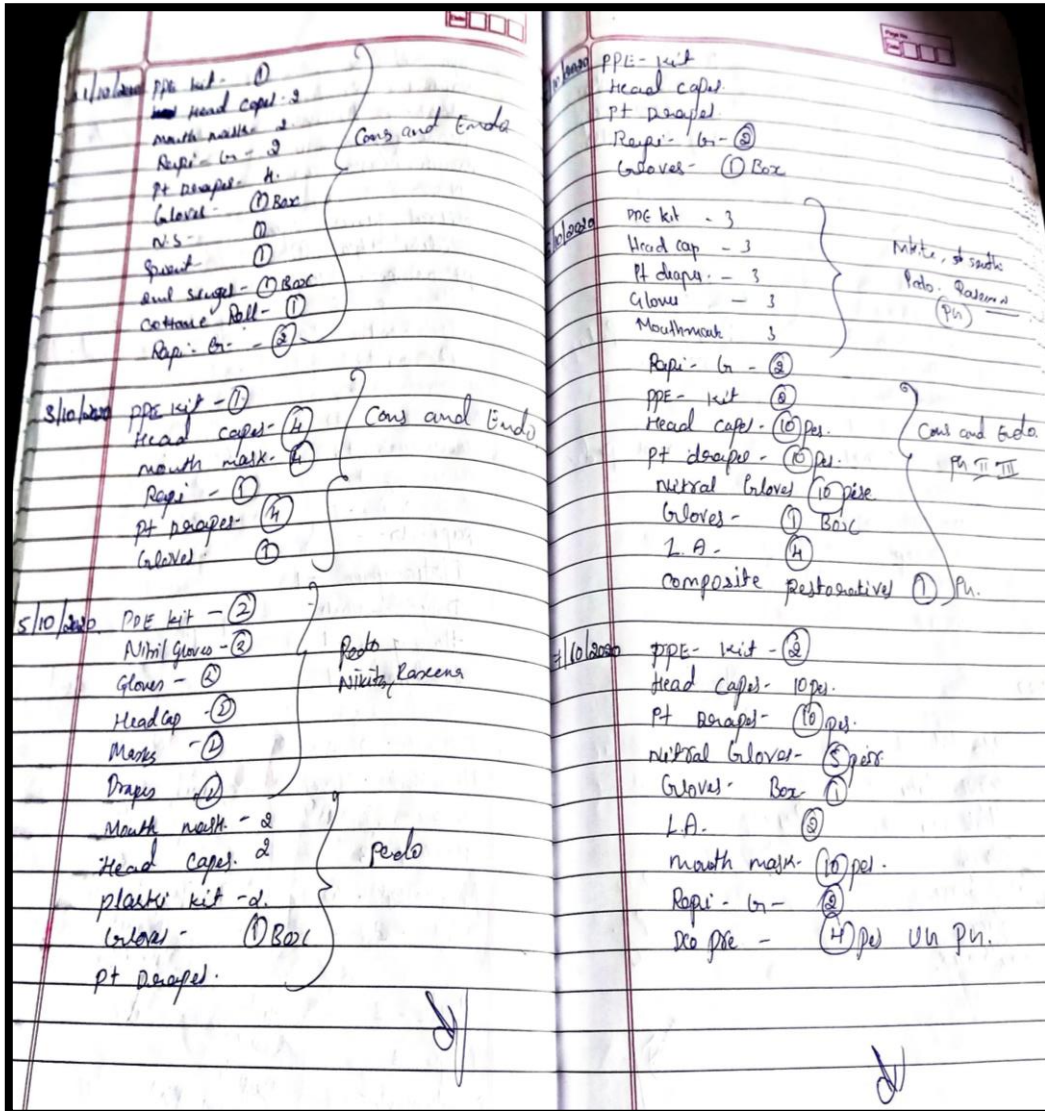 1/10/2020 PPE kit - ①
Head capes - 2
mouth mask - 2
Rapi - Gr - 2
Pt Drapes - 4.
Cons and Endo
Gloves - ① Box
N.S - ①
①
① Box
Cottone Roll - ①
Rapi - Gr - ②
3/10/2020 PPE kit - ①
Head capes - ④
mouth mask - ④
Rapi - ①
Pt Drapes - ④
Gloves ①
Cons and Endo
5/10/2020 PPE kit - ②
Nitril Gloves - ②
Gloves - ②
Head Cap - ②
Masks - ②
Drapes ②
Pedo
Nikita, Raseena
Mouth mask - 2
Head Capes. 2
plastic kit - 2.
Gloves - ① Box
Pt Drapes.
Pedo
Page No
Date
/10/2020 PPE - kit
Head capes.
Pt Drapes.
Rapi - Gr - ②
Gloves - ① Box
/10/2020 PPE kit - 3
Head cap - 3
Pt drapes. - 3
Gloves - 3
Mouthmask 3
Pedo. Raseena
Rapi - Gr - ②
PPE - kit ②
Head capes - ⑩ pes.
Pt drapes - ⑩ pes.
Nitral Gloves ⑩
Gloves - ① Box
L.A. - ④
Composite Restoratives ① Ph.
Cons and Endo
Ph II III
/10/2020 PPE - kit - ②
Head Capes - 10 pes.
Pt Drapes - ⑩ pes.
Nitral Gloves - ⑤ peir.
Gloves - Box - ①
L.A. ②
mouth mask - ⑩ pes.
Rapi - Gr - ②
④ pes